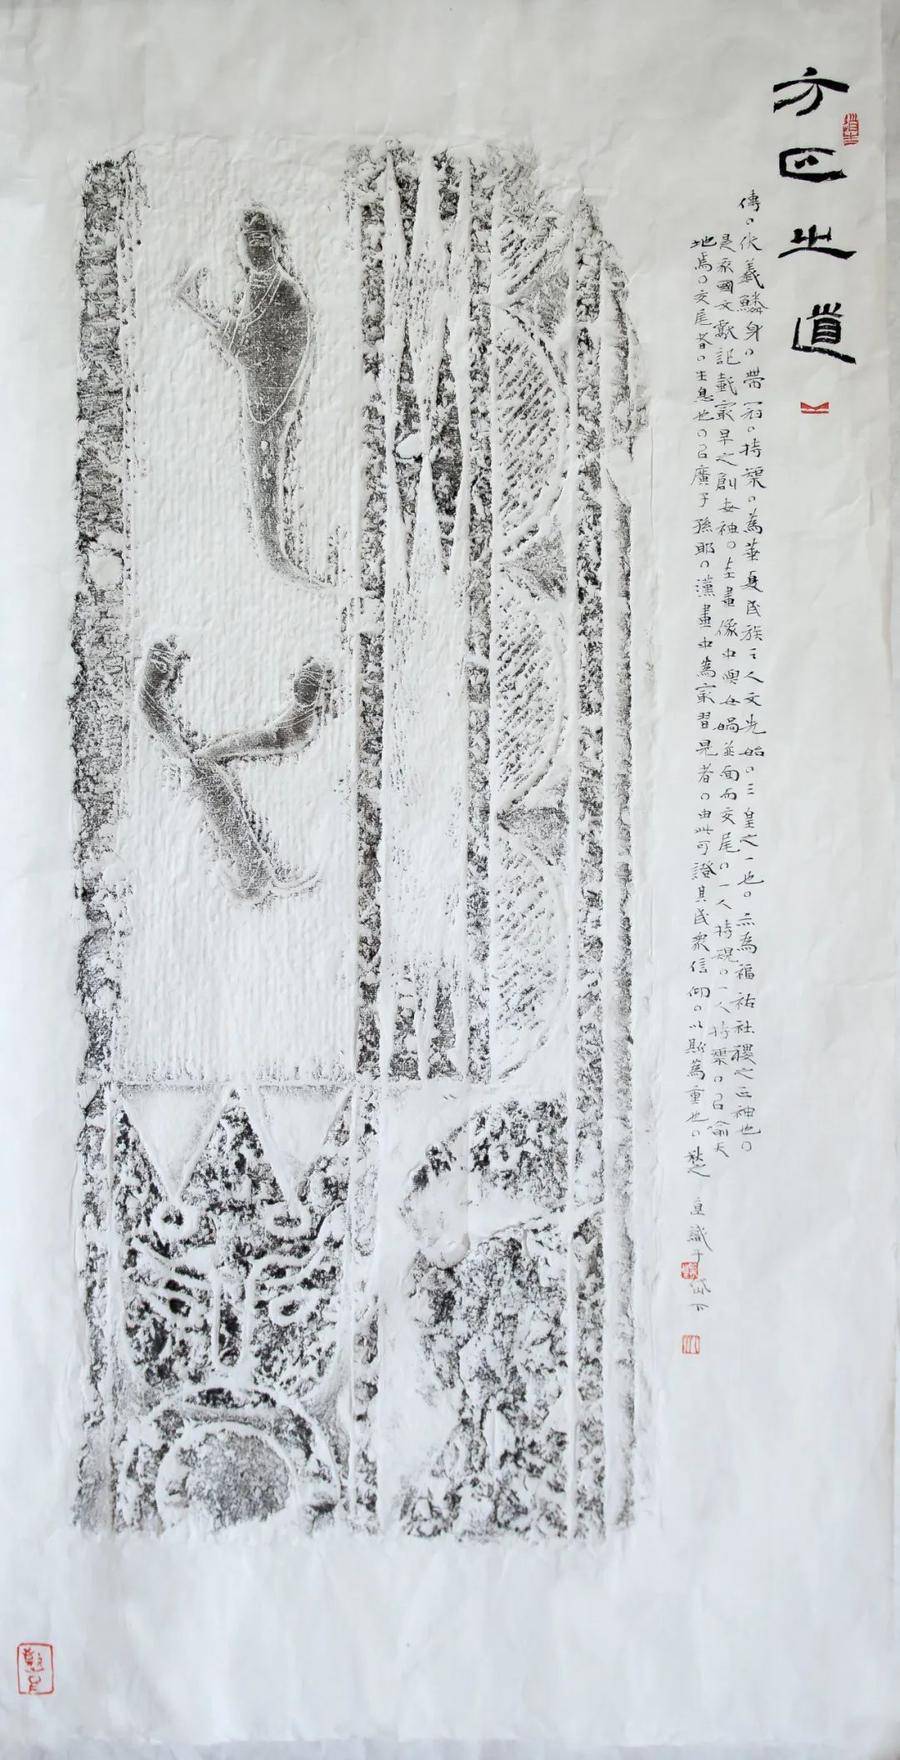 方正之道
傳。伏羲鱗身。帶冠。持榘。為華夏民族之人文先始。三皇之一也。亦為福祐社稷之正神也。
是我國文獻記載最早之創世神。在畫像中與女媧並面而交尾。一人持規。一人持榘。㠯俞天
地焉。交尾者。生息也。㠯廣子孫耶。漢畫中為最習見者。由此可證其民眾信仰。以斯為重也。秋之 識于岱下